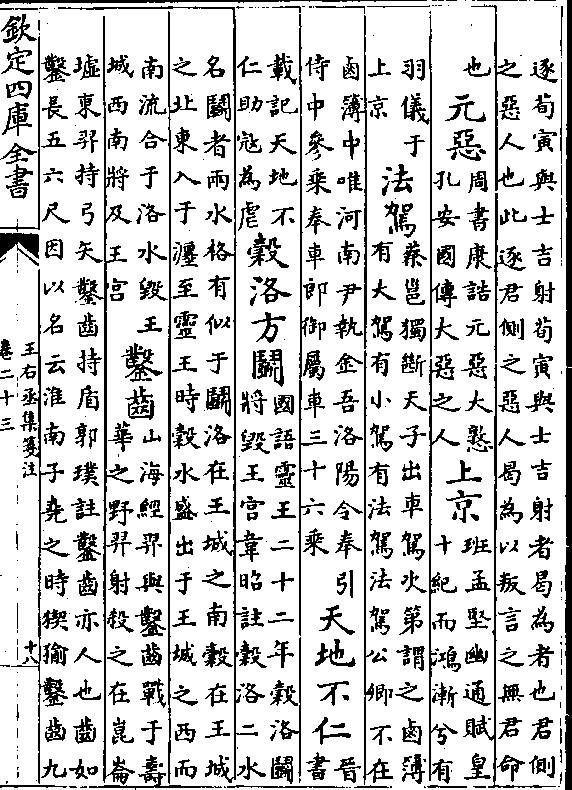 逐荀寅與士吉射荀寅與士吉射者曷為者也君側
之惡人也此逐君側之惡人曷為以叛言之無君命
也
元惡
周書康誥元惡大憝
孔安國傳大惡之人
上京
班孟堅幽通賦皇
十紀而鴻漸兮有
羽儀于
上京
法駕
蔡邕獨斷天子出車駕次第謂之鹵簿
有大駕有小駕有法駕法駕公卿不在
鹵簿中唯河南尹執金吾洛陽令奉引
侍中參乘奉車郎御屬車三十六乘
天地不仁
晉
書
載記天地不
仁助寇為虐
穀洛方鬭
國語靈王二十二年穀洛鬭
將毀王宮韋昭註穀洛二水
名鬭者兩水格有似于鬭洛在王城之南穀在王城
之北東入于瀍至靈王時穀水盛出于王城之西而
南流合于洛水毀王
城西南將及王宮
鑿齒
山海經羿與鑿齒戰于壽
華之野羿射殺之在崑崙
墟東羿持弓矢鑿齒持盾郭璞註鑿齒亦人也齒如
鑿長五六尺因以名云淮南子堯之時猰貐鑿齒九
欽定四庫全書
王右丞集箋注
卷二十三
十八